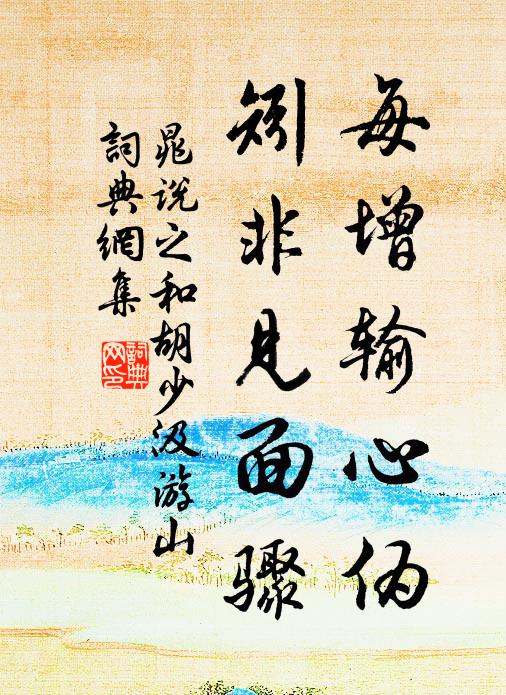 每增输心伪
矧非见面骤
晁说之和胡少汲游山
詞典網集
詞典网印